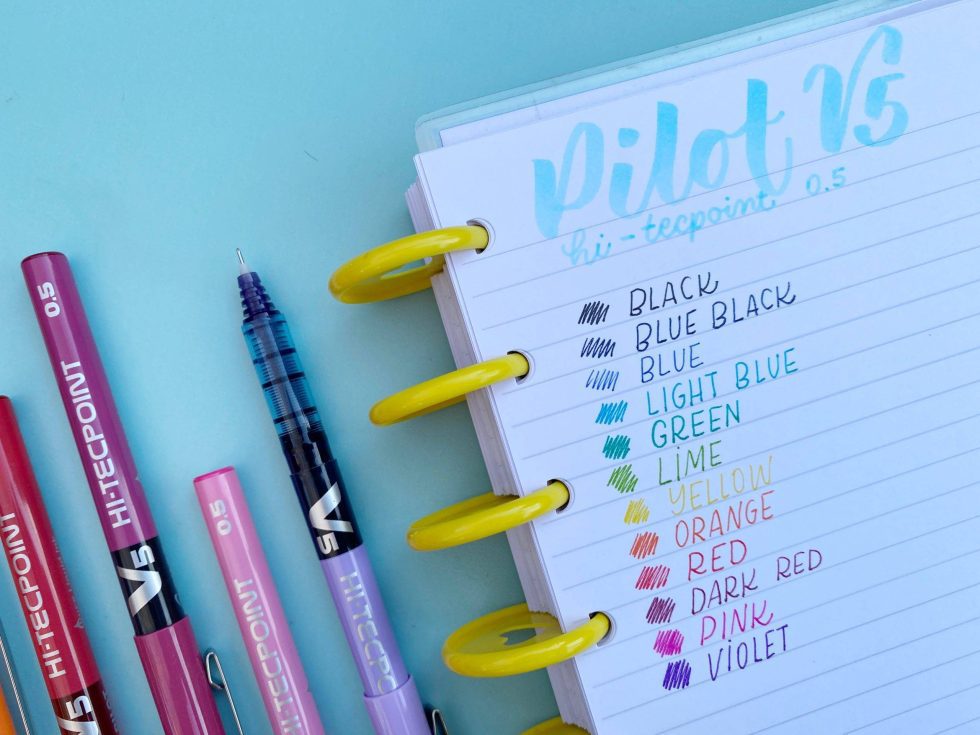 Pilot V5
hi-tecpoint 0.5
BLACK
BLUE BLACK
BLUE
LIGHT BLUE
GREEN
LIME
YELLOW
ORANGE
RED
DARK RED
PINK
VIOLET
HI-TECPOINT
V5
0.5
HI-TECPOINT
V5
0.5
HI-TECPOINT
V5
HI-TECPO